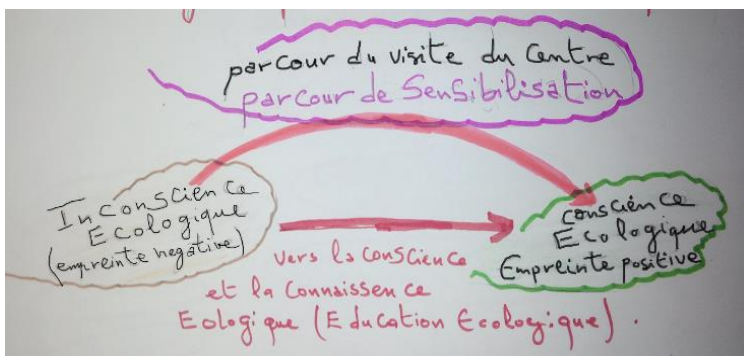 parcour du visite du Centre
parcour de Sensibilisation
Inconscience
Ecologique
(empreinte negative)
conscience
Ecologique
Empreinte positive
vers la conscience
et la Connaissence
Eologique (Education Ecologique).